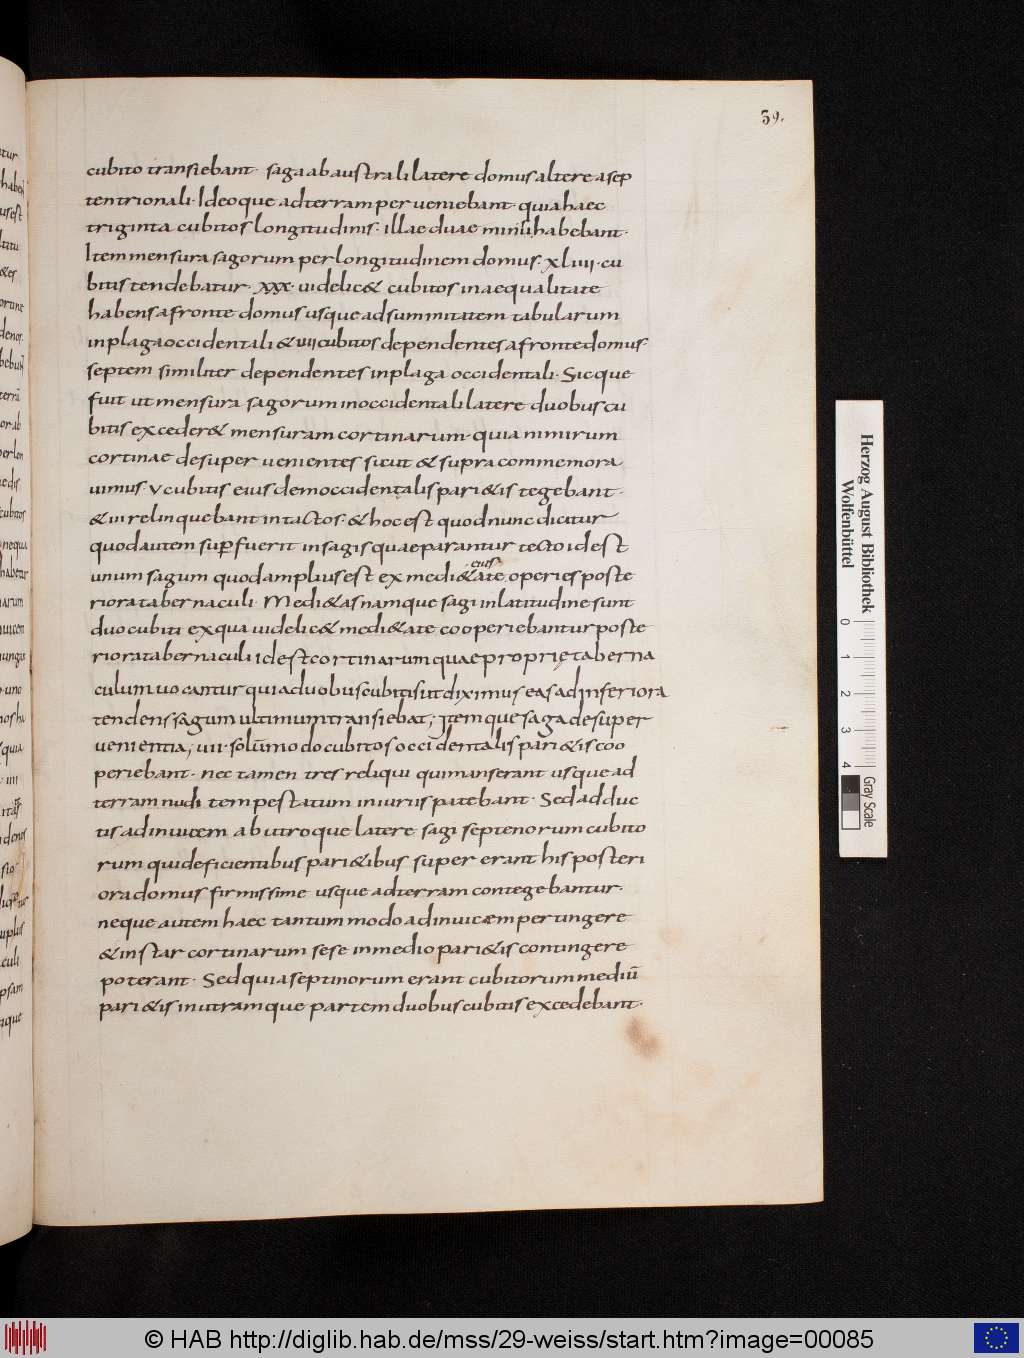 39.
cubito transiebant· saga ab australi latere domus altere a sep
tentrionali· Ideoque ad terram per veniebant· quia haec
triginta cubitos longitudinis· illae duae minus habebant·
Item mensura sagorum per longitudinem domus· xliiii· cu
bitis tendebatur· xxx· uidelic& cubitos in aequalitate
habens a fronte domus usque ad summitatem tabularum
in plaga occidentali & uii cubitos dependentes a fronte domus·
septem similiter dependentes in plaga occidentali· Sicque
fuit ut mensura sagorum in occidentali latere duobus cu
bitis exceder& mensuram cortinarum· quia nimirum
cortinae desuper uenientes sicut & supra commemora
uimus· v cubitis eiusdem occidentalis pari&is tegebant·
& iii relinquebant intactos· & hoc est quod nunc dicitur
quod autem sup̱fuerit in sagis quae parantur tecto id est
unum sagum quod amplius est ex medi&ate eius operies poste
riora tabernaculi· Medi&as namque sagi in latitudine sunt
duo cubiti ex qua uidelic& medi&ate cooperiebantur poste
riora tabernaculi id est cortinarum quae proprię taberna
culum uocantur quia duobus cubitis ut diximus eas ad inferiora
tendens sagum ultimum transiebat; Itemque saga desuper
uenientia, uii· solūmodo cubitos occidentalis pari&is coo
periebant· nec tamen tres reliqui qui manserant usque ad
terram nudi tempestatum iniuriis patebant· Sed adduc
tis ad inuicem ab utroque latere sagi septenorum cubito
rum qui deficientibus pari&ibus super erant his posteri
ora domus firmissime usque ad terram contegebantur·
neque autem haec tantummodo ad inuicæm pertingere
& instar cortinarum sese in medio pari&is contingere
poterant· Sed quia septinorum erant cubitorum mediū
pari&is in utramque partem duobus cubitis excedebant·
Herzog August Bibliothek
Wolfenbüttel
0 1 2 3 4
Gray Scale
© HAB http://diglib.hab.de/mss/29-weiss/start.htm?image=00085